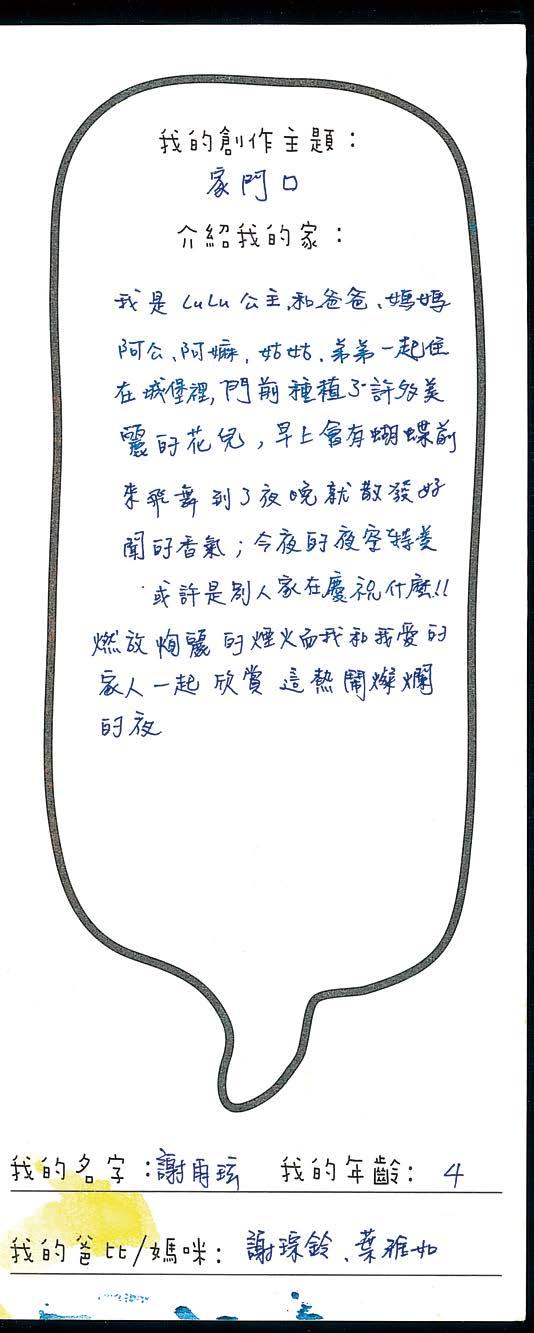 我的創作主題：
家門口
介紹我的家：
我是 LuLu 公主,和爸爸、媽媽
阿公、阿嬤、姑姑、弟弟一起住
在城堡裡,門前種植了許多美
麗的花兒,早上會有蝴蝶前
來飛舞到了夜晚就散發好
聞的香氣;今夜的夜空特美
或許是別人家在慶祝什麼!!
燃放絢麗的煙火而我和我愛的
家人一起欣賞這熱鬧燦爛
的夜
我的名字：謝甯玹 我的年齡：4
我的爸比/媽咪：謝琮鈴、葉雅如